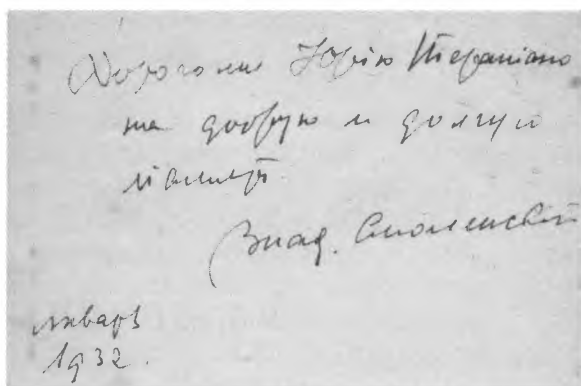 Дорогому Юрію Терапіано
на добрую и долгую
память
Влад. Смоленскій
январь
1932.